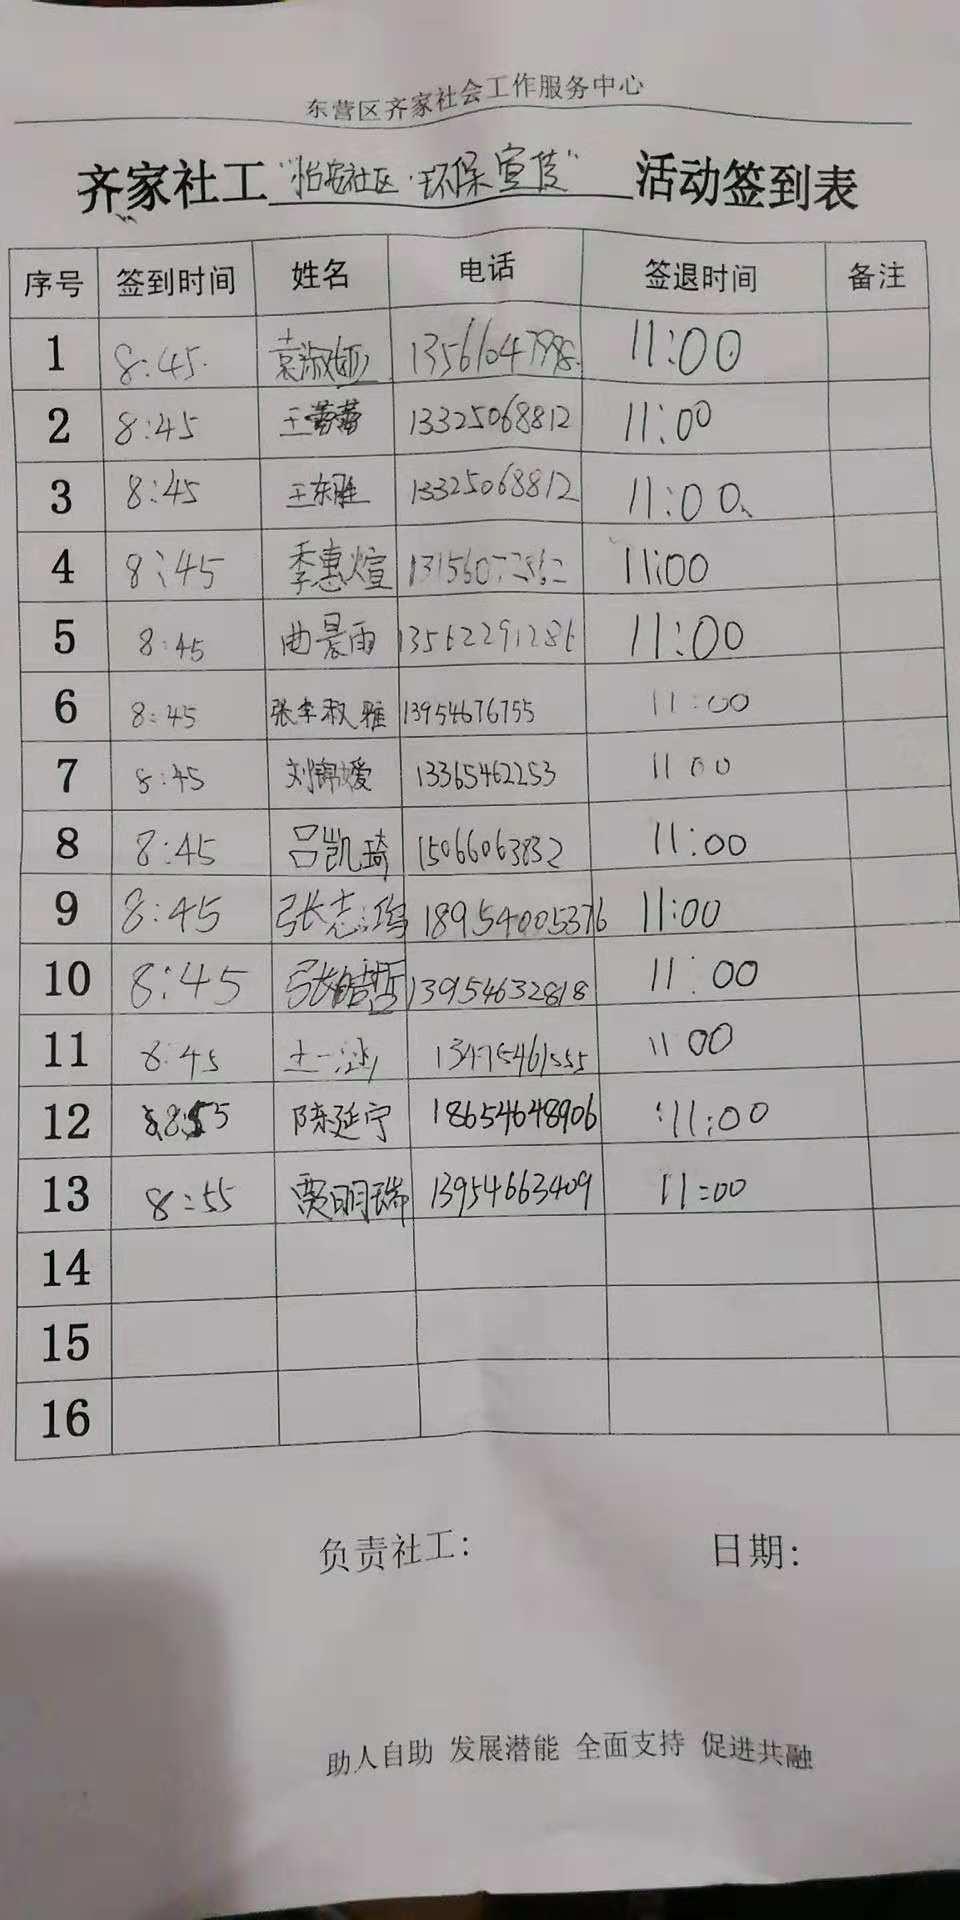 东营区齐家社会工作服务中心
齐家社工"怡安社区·环保宣传"活动签到表
序号 签到时间 姓名 电话 签退时间 备注
1 8:45 袁淑 11:00
2 8:45 王蕾蕾 13325068812 11:00
3 8:45 王东雅 13325068812 11:00
4 8:45 季惠煊 11:00
5 8:45 曲晨雨 13562291286 11:00
6 8:45 张李淑雅 13954676755 11:00
7 8:45 刘锦媛 13365462253 11 00
8 8:45 吕凯琦 15066063832 11:00
9 8:45 张志 18954005376 11:00
10 8:45 张皓哲 13954632818 11:00
11 8:45 13475461555 11 00
12 8:55 陈延宁 18654648906 11:00
13 8:55 贾明瑞 13954663409 11:00
14
15
16
负责社工: 日期:
助人自助 发展潜能 全面支持 促进共融